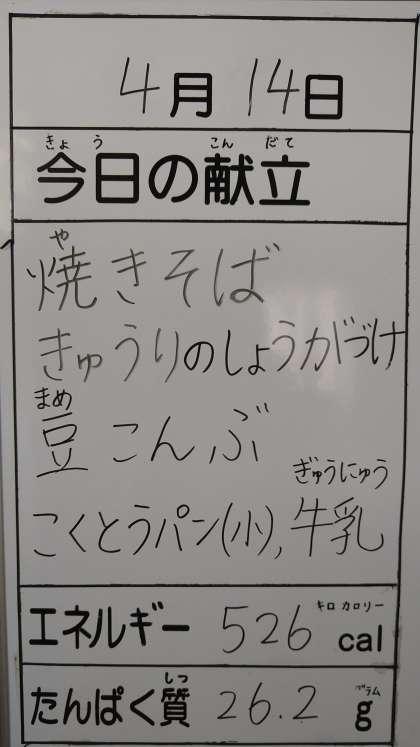 4月14日
きょう こんだて
今日の献立
や
焼きそば
きゅうりのしょうがづけ
まめ
豆こんぶ
ぎゅうにゅう
こくとうパン(小),牛乳
キロカロリー
エネルギー 526 cal
しつ グラム
たんぱく質 26.2 g